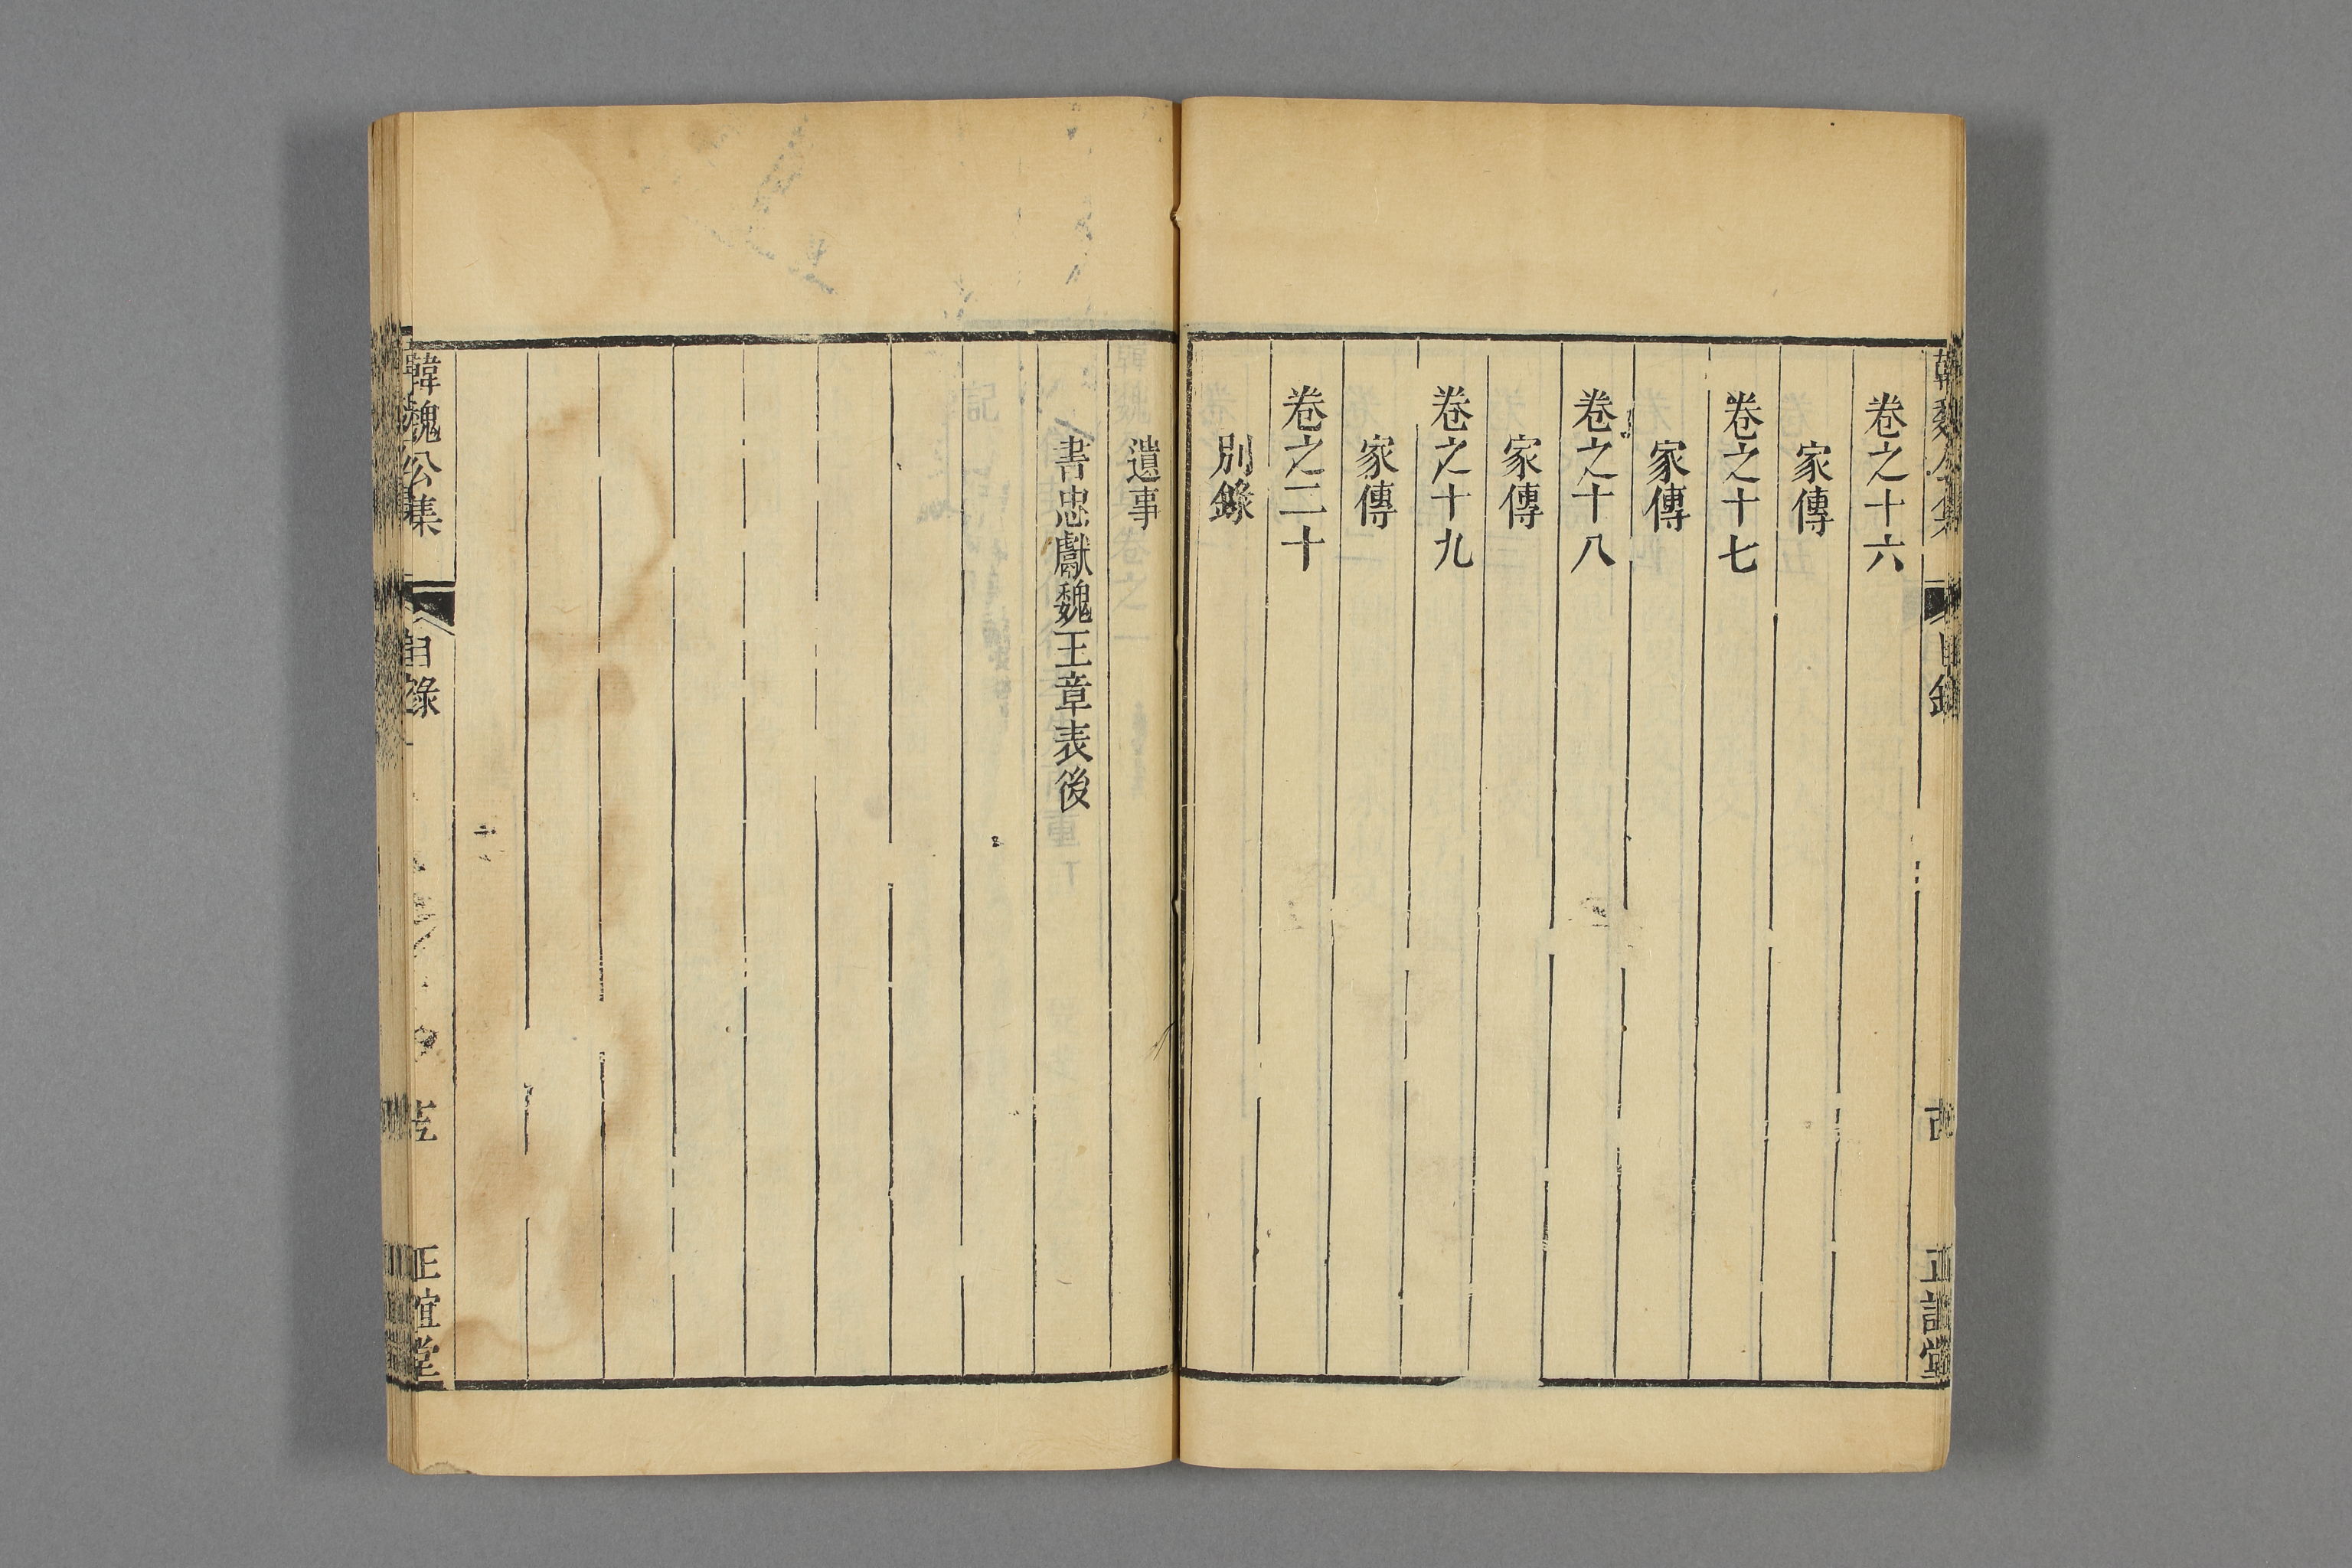 韓魏公集 目錄 正誼堂
卷之十六
家傳
卷之十七
家傳
卷之十八
家傳
卷之十九
家傳
卷之二十
別錄
遺事
書忠獻魏王章表後
韓魏公集 目錄 正誼堂